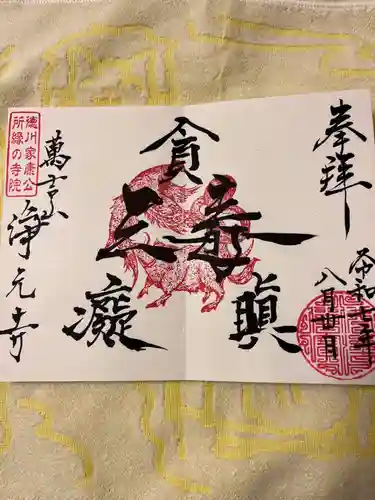 奉拝
令和七年
八月廿日
貪
三毒
瞋
癡
萬室山
浄元寺
徳川家康公
所縁の寺院